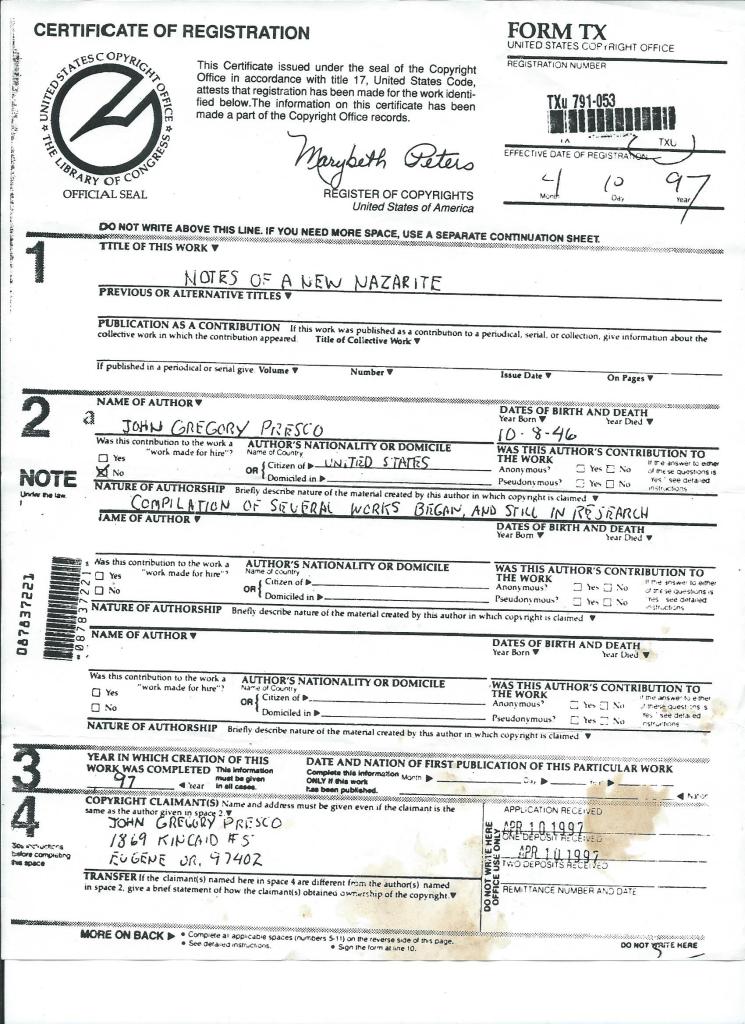 CERTIFICATE OF REGISTRATION
FORM TX
UNITED STATES COPYRIGHT OFFICE
REGISTRATION NUMBER
UNITED STATES COPYRIGHT OFFICE
THE LIBRARY OF CONGRESS
OFFICIAL SEAL
This Certificate issued under the seal of the Copyright
Office in accordance with title 17, United States Code,
attests that registration has been made for the work identi-
fied below. The information on this certificate has been
made a part of the Copyright Office records.
Marybeth Peters
REGISTER OF COPYRIGHTS
United States of America
TXu 791-053
TXU
EFFECTIVE DATE OF REGISTRATION
4 10 97
Month Day Year
DO NOT WRITE ABOVE THIS LINE. IF YOU NEED MORE SPACE, USE A SEPARATE CONTINUATION SHEET.
1
TITLE OF THIS WORK ▼
NOTES OF A NEW NAZARITE
PREVIOUS OR ALTERNATIVE TITLES ▼
PUBLICATION AS A CONTRIBUTION If this work was published as a contribution to a periodical, serial, or collection, give information about the
collective work in which the contribution appeared. Title of Collective Work ▼
If published in a periodical or serial give: Volume ▼ Number ▼ Issue Date ▼ On Pages ▼
2
a
NAME OF AUTHOR ▼
JOHN GREGORY PRESCO
DATES OF BIRTH AND DEATH
Year Born ▼ Year Died ▼
10-8-46
Was this contribution to the work a
"work made for hire"?
Yes
No
AUTHOR'S NATIONALITY OR DOMICILE
Name of Country
OR { Citizen of ▶ UNITED STATES
Domiciled in ▶
WAS THIS AUTHOR'S CONTRIBUTION TO
THE WORK
Anonymous? Yes No
Pseudonymous? Yes No
If the answer to either
of these questions is
"Yes" see detailed
instructions
NOTE
Under the law
NATURE OF AUTHORSHIP Briefly describe nature of the material created by this author in which copyright is claimed ▼
COMPILATION OF SEVERAL WORKS BEGAN, AND STILL IN RESEARCH
NAME OF AUTHOR ▼
DATES OF BIRTH AND DEATH
Year Born ▼ Year Died ▼
Was this contribution to the work a
"work made for hire"?
Yes
No
AUTHOR'S NATIONALITY OR DOMICILE
Name of country
OR { Citizen of ▶
Domiciled in ▶
WAS THIS AUTHOR'S CONTRIBUTION TO
THE WORK
Anonymous? Yes No
Pseudonymous? Yes No
If the answer to either
of these questions is
"Yes" see detailed
instructions
087837221
087837221
NATURE OF AUTHORSHIP Briefly describe nature of the material created by this author in which copyright is claimed ▼
NAME OF AUTHOR ▼
DATES OF BIRTH AND DEATH
Year Born ▼ Year Died ▼
Was this contribution to the work a
"work made for hire"?
Yes
No
AUTHOR'S NATIONALITY OR DOMICILE
Name of Country
OR { Citizen of ▶
Domiciled in ▶
WAS THIS AUTHOR'S CONTRIBUTION TO
THE WORK
Anonymous? Yes No
Pseudonymous? Yes No
If the answer to either
of these questions is
"Yes" see detailed
instructions
NATURE OF AUTHORSHIP Briefly describe nature of the material created by this author in which copyright is claimed ▼
3
YEAR IN WHICH CREATION OF THIS
WORK WAS COMPLETED This information
must be given
in all cases.
97 ◀ Year
DATE AND NATION OF FIRST PUBLICATION OF THIS PARTICULAR WORK
Complete this information
ONLY if this work
has been published.
Month ▶ Day ▶ Year ▶
◀ Nation
4
See instructions
before completing
this space
COPYRIGHT CLAIMANT(S) Name and address must be given even if the claimant is the
same as the author given in space 2. ▼
JOHN GREGORY PRESCO
1869 KINCAID #5
EUGENE OR. 97402
TRANSFER If the claimant(s) named here in space 4 are different from the author(s) named
in space 2, give a brief statement of how the claimant(s) obtained ownership of the copyright. ▼
DO NOT WRITE HERE
OFFICE USE ONLY
APPLICATION RECEIVED
APR 10 1997
ONE DEPOSIT RECEIVED
APR 10 1997
TWO DEPOSITS RECEIVED
REMITTANCE NUMBER AND DATE
MORE ON BACK ▶
• Complete all applicable spaces (numbers 5-11) on the reverse side of this page.
• See detailed instructions. • Sign the form at line 10.
DO NOT WRITE HERE